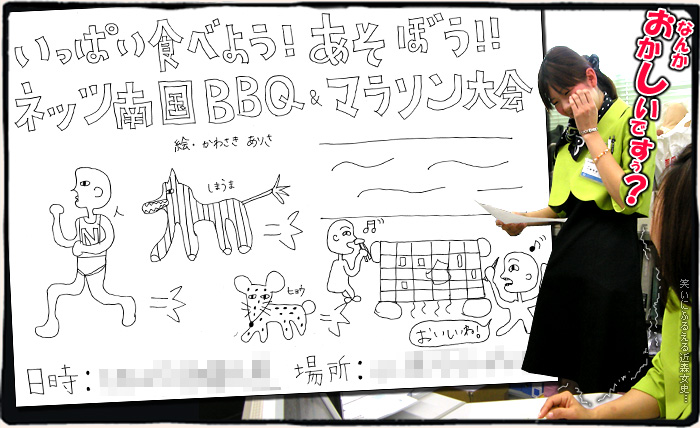 いっぱい食べよう！あそぼう!!
ネッツ南国BBQ＆マラソン大会
絵・かわさき ありさ
人
N
しまうま
ヒョウ
おいしいね！
日時：
場所：
なんか
おかしいですぅ？
笑いにふるえる近森女史…